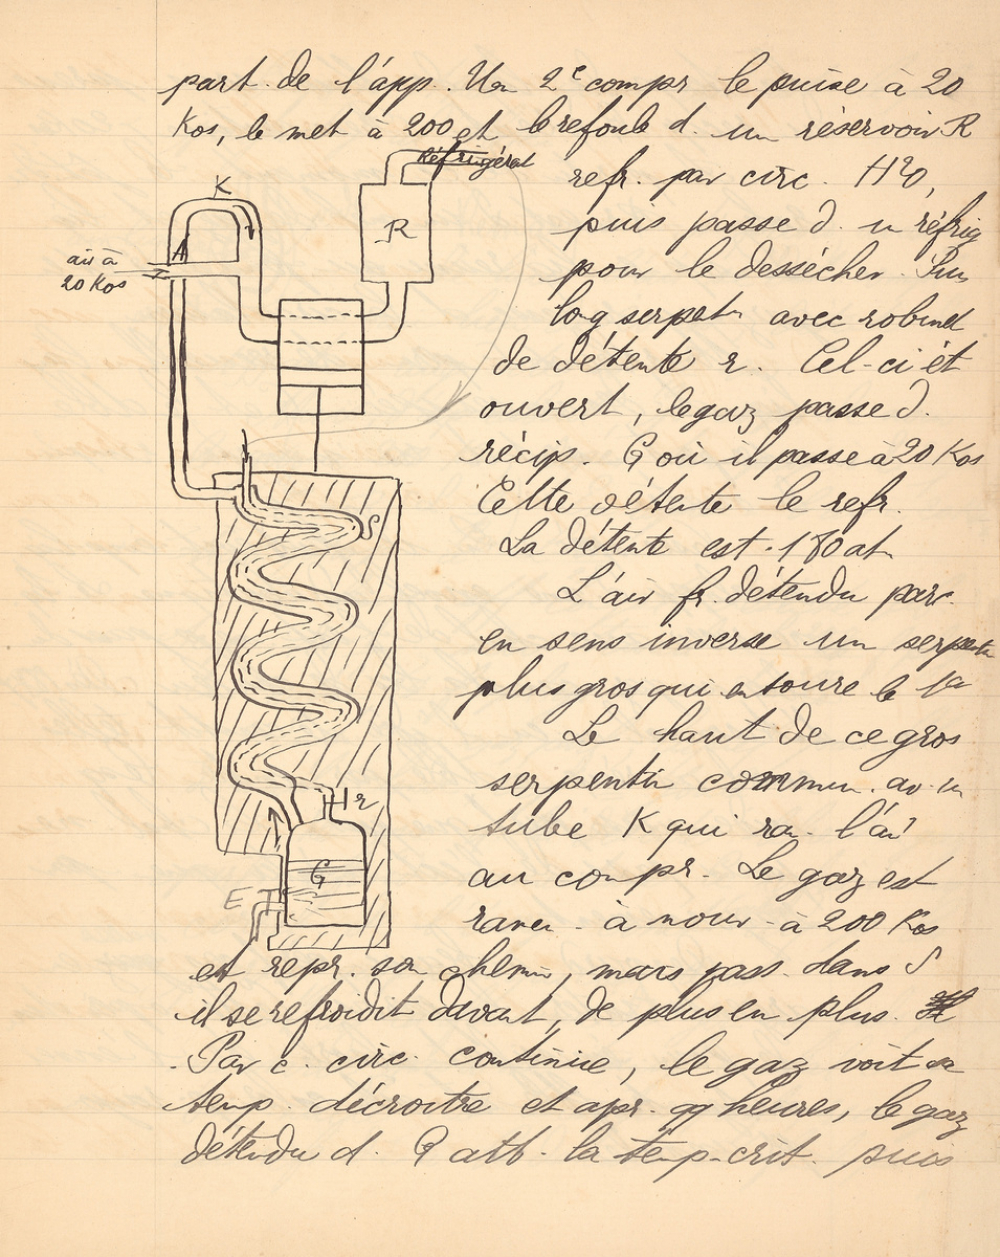 part. de l'app. Un 2e compr le puise à 20
Kos, le met à 200 et le refoule d. un réservoir R
Réfrigérat
refr. par circ. H2O,
K
puis passe d. un réfrig
R
A
air à
20 Kos
pour le dessécher. Pui
long serpetn avec robinet
de détente r. Cel-ci ét
ouvert, le gaz passe d.
récip. G où il passe à 20 Kos
Cette détente le refr.
S
La détente est. 180 at
L'air fr. détendu parc.
en sens inverse un serpentin
plus gros qui entoure le 1er
Le haut de ce gros
serpentin commun. av. un
r
tube K qui ra. l'air
G
au compr. Le gaz est
E
ramen. à nouv. à 200 Kos
et repr. son chemin, mais pass. dans S
il se refroidit davant, de plus en plus.
Par c. circ. continue, le gaz voit sa
temp. décroitre et apr. qq heures, le gaz
détendu d. G att. la temp. crit. puis